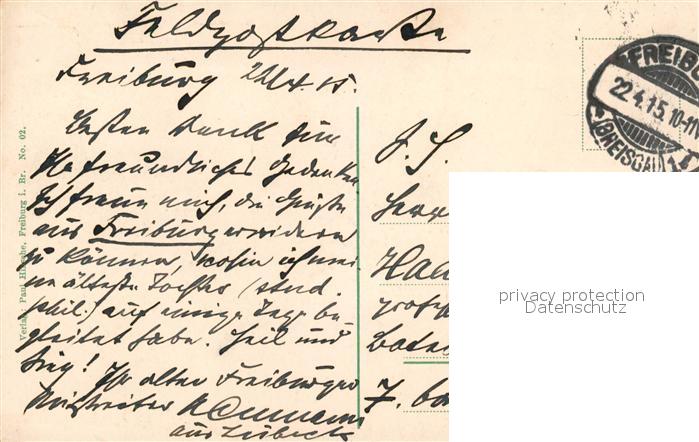 Feldpostkarte
Freiburg 22/4. 15.
Besten Dank für
Ihr freundliches Gedenken
Ich freue mich, die Grüße
aus Freiburg erwidern
zu können, wohin ich mei-
ne älteste Tochter (stud.
phil.) auf einige Tage be-
gleitet habe. Heil und
Sieg! Ihr alter Freiburger
Mitstreiter
aus Lübeck
Verlag: Paul Freiburg i. Br. No. 02.
FREIB
22.4.15.10-11
(BREISGAU)
J. S.
Herrn
7. ba
privacy protection
Datenschutz